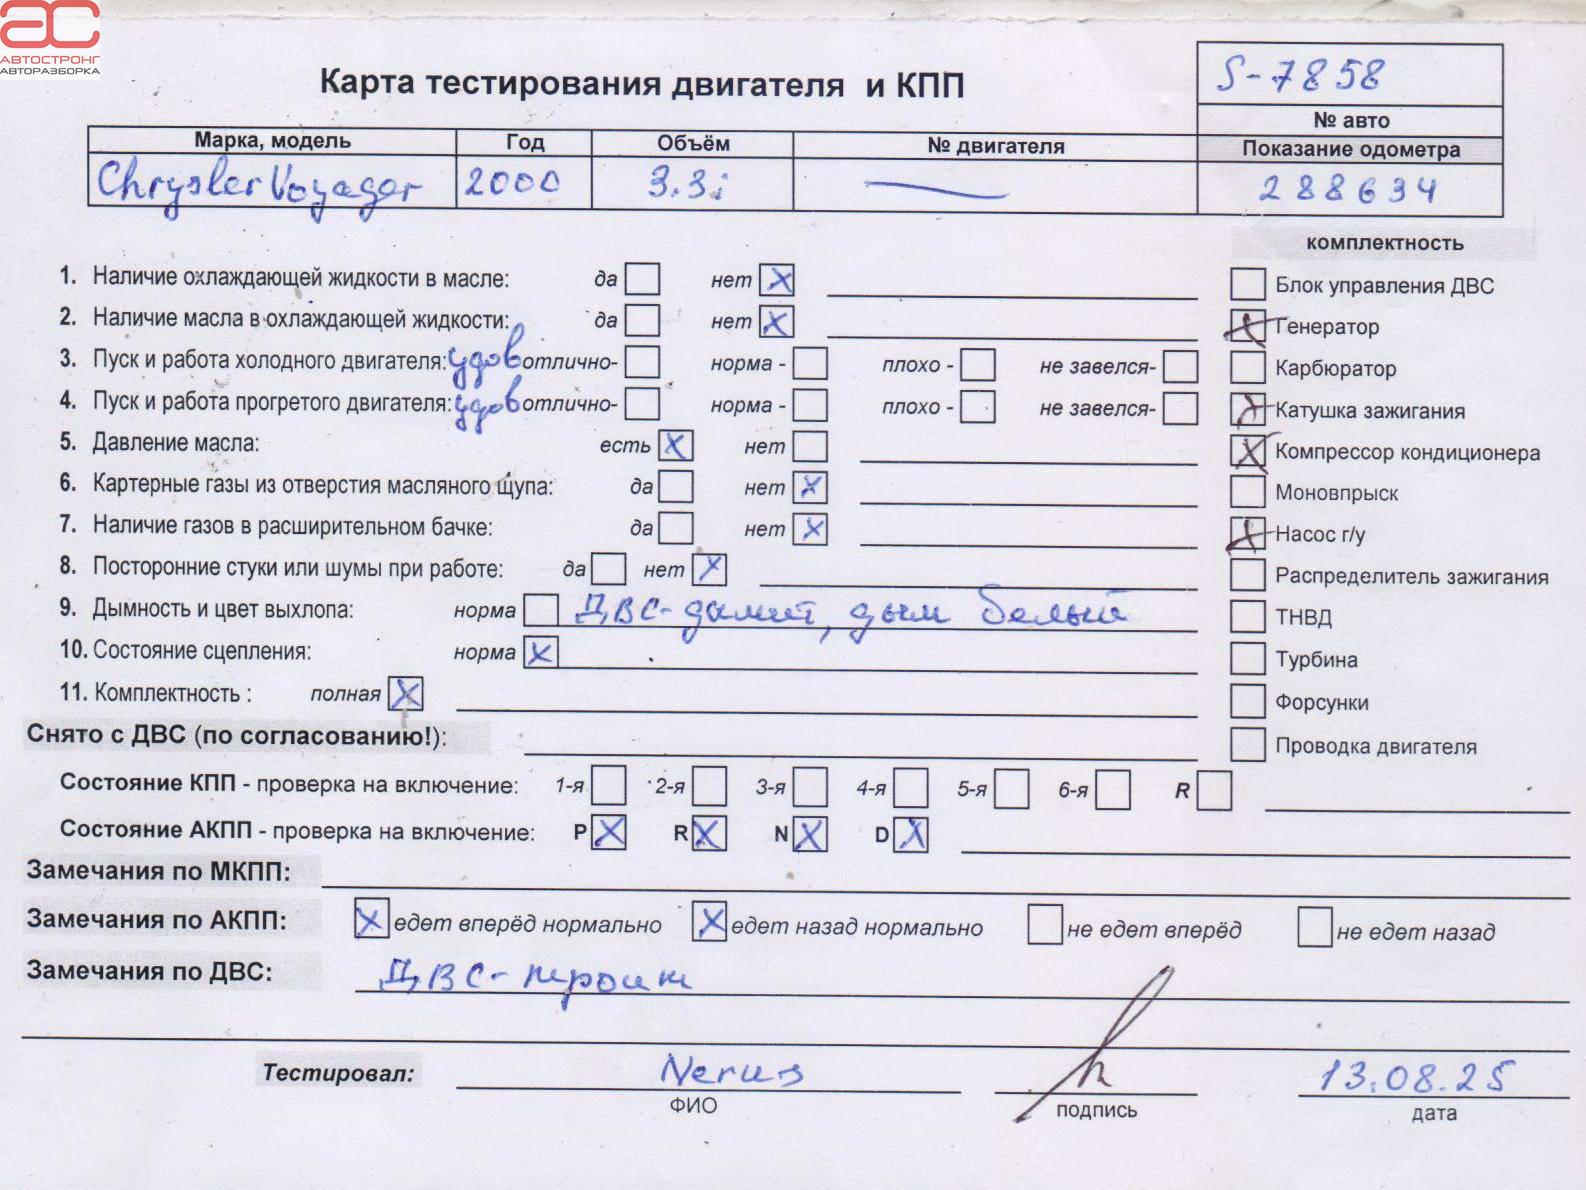 АС
АВТОСТРОНГ
АВТОРАЗБОРКА
Карта тестирования двигателя и КПП
S-7858
№ авто
Марка, модель Год Объём № двигателя Показание одометра
Chrysler Voyager 2000 3.3i — 288634
комплектность
1. Наличие охлаждающей жидкости в масле: да нет X
Блок управления ДВС
2. Наличие масла в охлаждающей жидкости: да нет X
X Генератор
3. Пуск и работа холодного двигателя: удов отлично- норма - плохо - не завелся-
Карбюратор
4. Пуск и работа прогретого двигателя: удов отлично- норма - плохо - не завелся-
X Катушка зажигания
5. Давление масла: есть X нет
X Компрессор кондиционера
6. Картерные газы из отверстия масляного щупа: да нет X
Моновпрыск
7. Наличие газов в расширительном бачке: да нет X
X Насос г/у
8. Посторонние стуки или шумы при работе: да нет X
Распределитель зажигания
9. Дымность и цвет выхлопа: норма ДВС-дымит, дым белый
ТНВД
10. Состояние сцепления: норма X
Турбина
11. Комплектность : полная X
Форсунки
Снято с ДВС (по согласованию!):
Проводка двигателя
Состояние КПП - проверка на включение: 1-я 2-я 3-я 4-я 5-я 6-я R
Состояние АКПП - проверка на включение: P X R X N X D X
Замечания по МКПП:
Замечания по АКПП: X едет вперёд нормально X едет назад нормально не едет вперёд не едет назад
Замечания по ДВС: ДВС-троит
Тестировал: 13.08.25
ФИО подпись дата